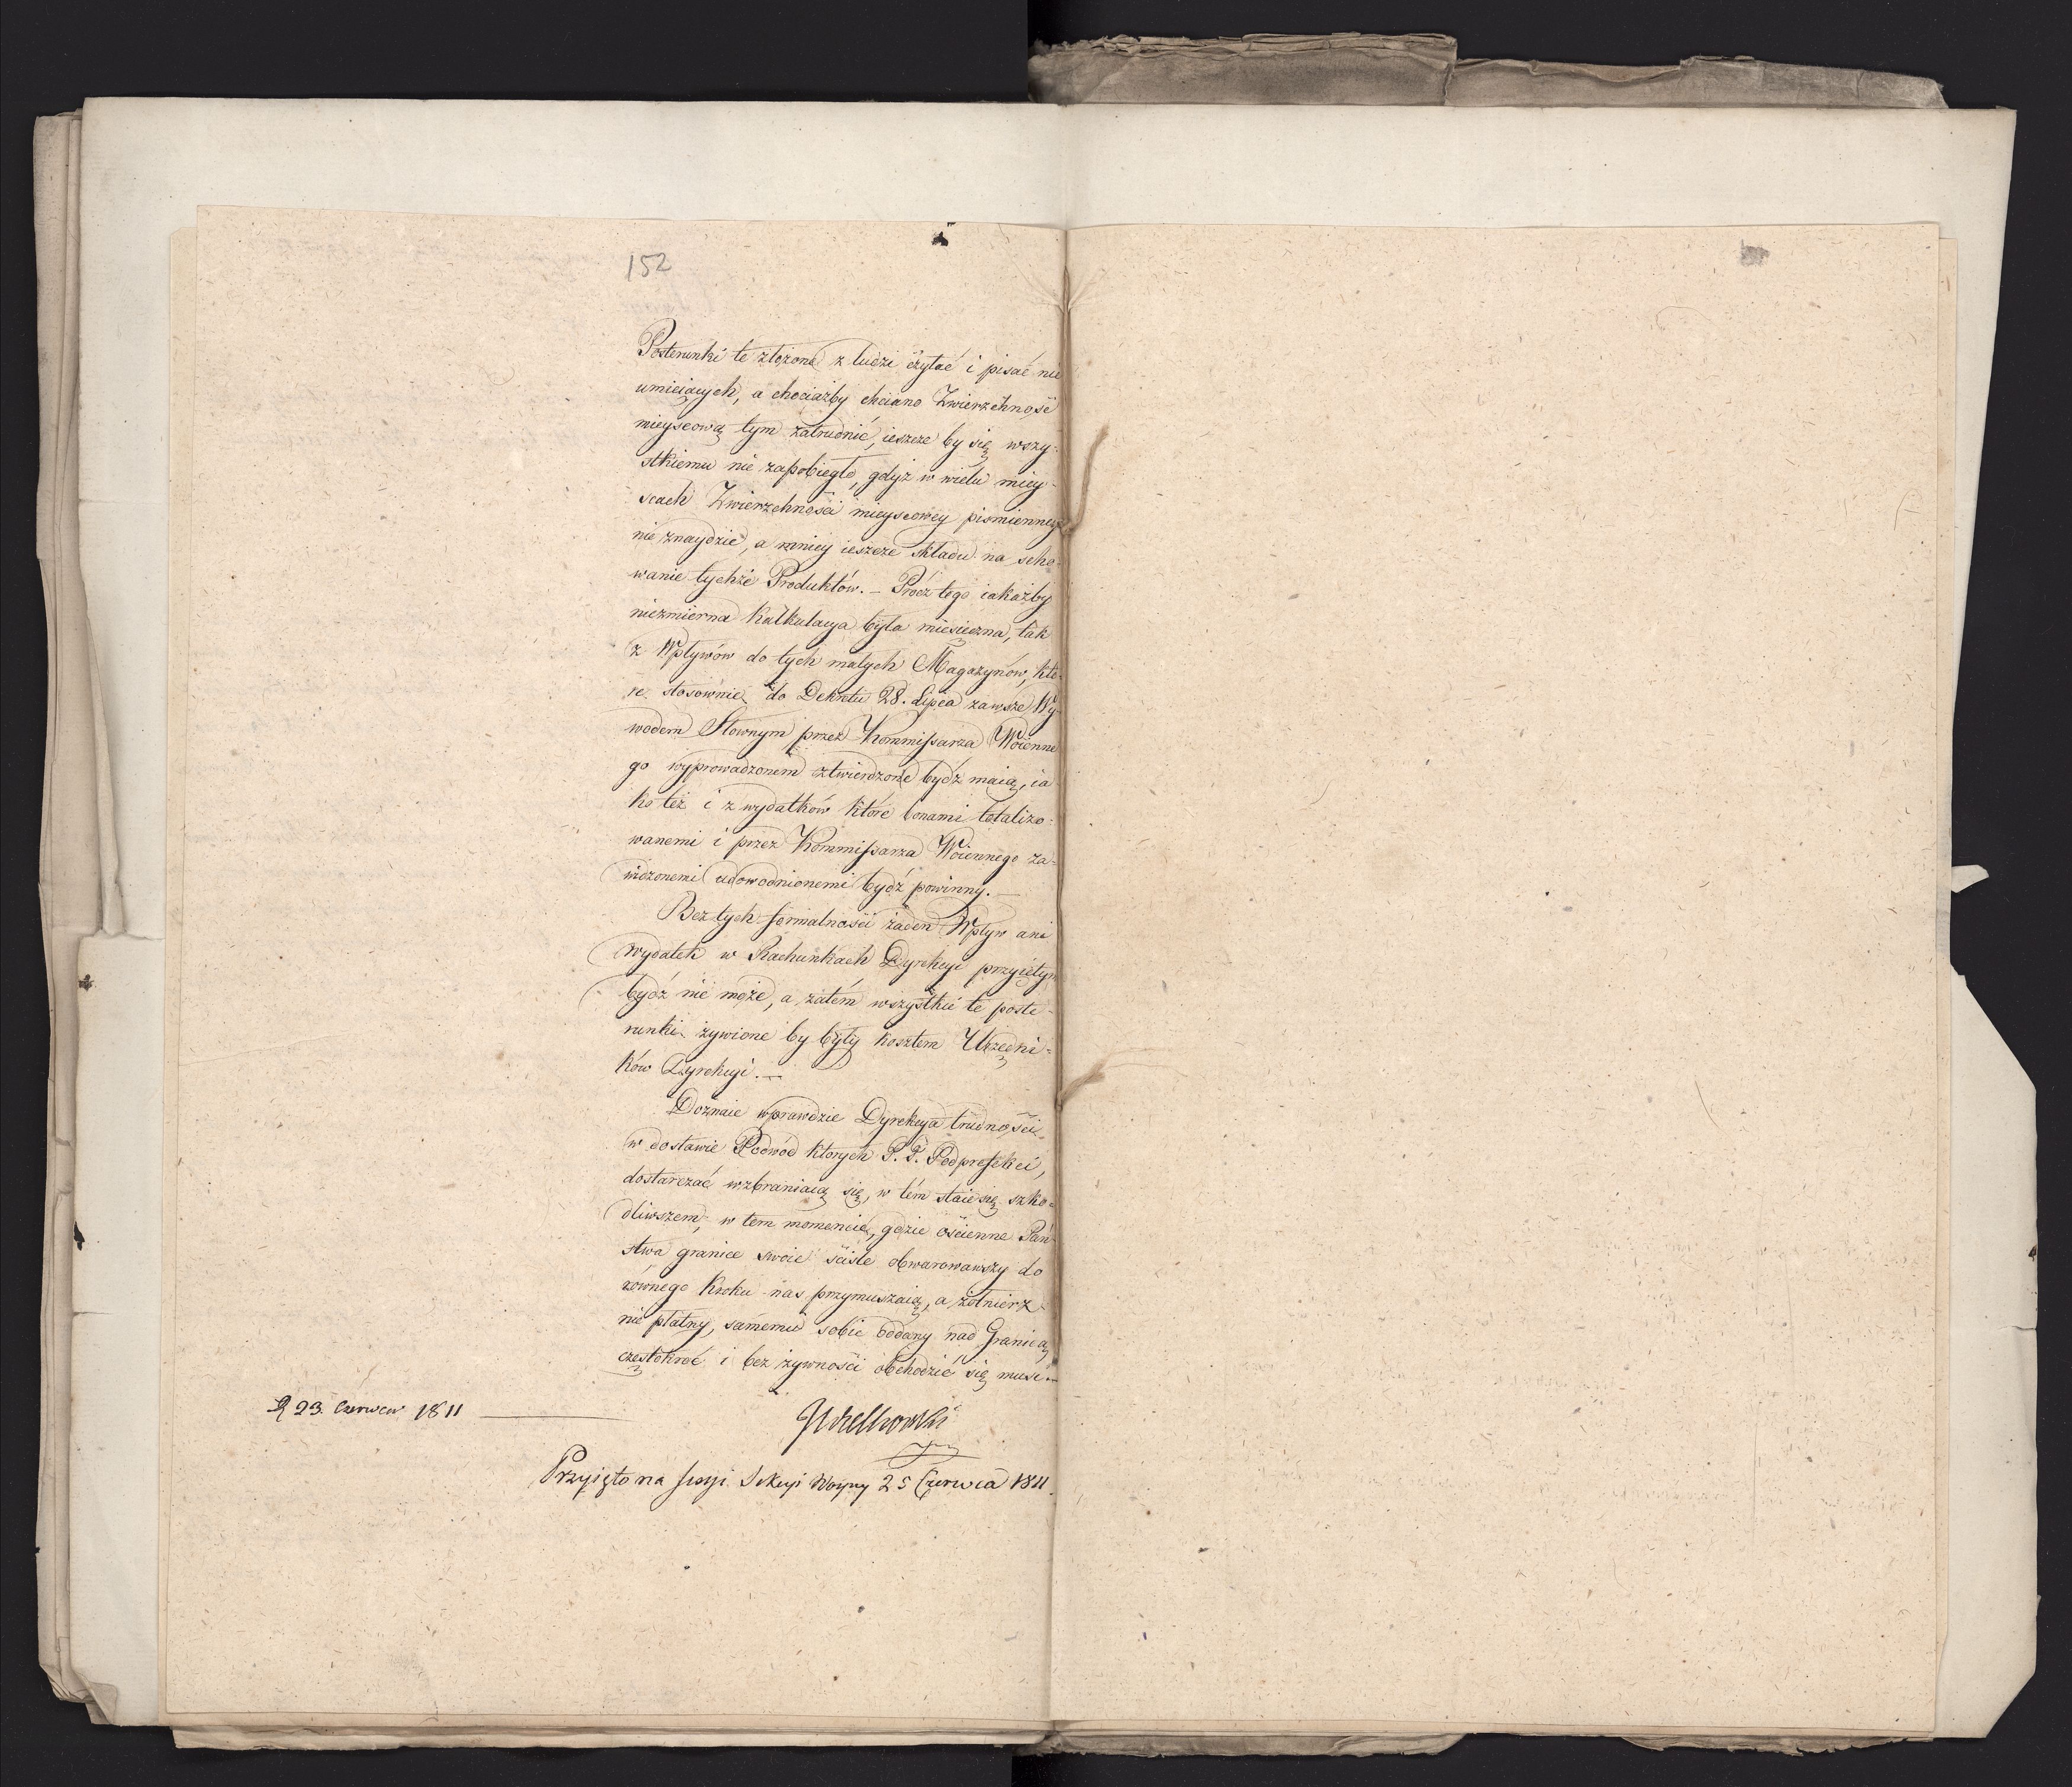 152
Posterunki te złożone z ludzi czytać i pisać nie
umieiących, a chociażby chciano Zwierzchność
mieyscową tym zatrudnić, ieszcze by się wszy-
stkiemu nie zapobiegło, gdyż w wielu miey-
scach Zwierzchności mieyscowey pismienney
nie znaydzie, a mniey ieszcze składu na scho-
wanie tychże Produktów. – Prócz tego iakażby
niezmierna kalkulacya była miesięczna, tak
z Wpływów do tych małych Magazynów, któ-
re stosownie do Dekretu 28. Lipca zawsze Wy-
wodem Słownym przez Kommissarza Woienne
go wyprowadzonem stwierdzone bydź maią, ia
ko też i z wydatków które bonami totalizo-
wanemi i przez Kommissarza Woiennego za-
widzonemi udowodnionemi bydź powinny. –
Bez tych formalności żaden Wpływ ani
wydatek w Rachunkach Dyrekcyi przyiętym
bydź nie może, a zatém wszystkie te poste-
runki żywione by były kosztem Urzędni-
ków Dyrekcyi. –
Doznaie wprawdzie Dyrekcya trudności
w dostawie Podwód których P. P. Podprefekci,
dostarczać wzbraniaią się, w tém staie się szko-
dliwszem, w tem momencie, gdzie ościenne Pań-
stwa granice swoie ściśle obwarowawszy do
równego kroku nas przymuszaią, a żołnierz
nie płatny, samemu sobie oddany nad Granicą
częstokroć i bez żywności obchodzić się musi. –
23. Czerwca 1811
Przyięto na sessyi Sekcyi Woyny 25 Czerwca 1811.